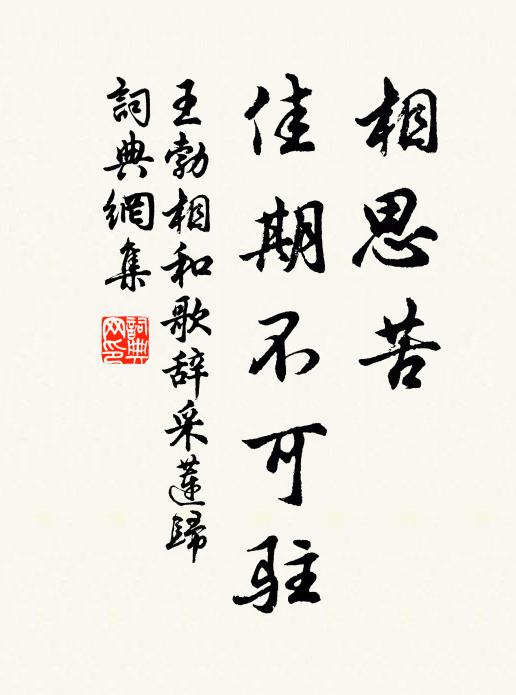 相思苦
佳期不可驻
王勃相和歌辞采莲歸
詞典網集
詞典网印